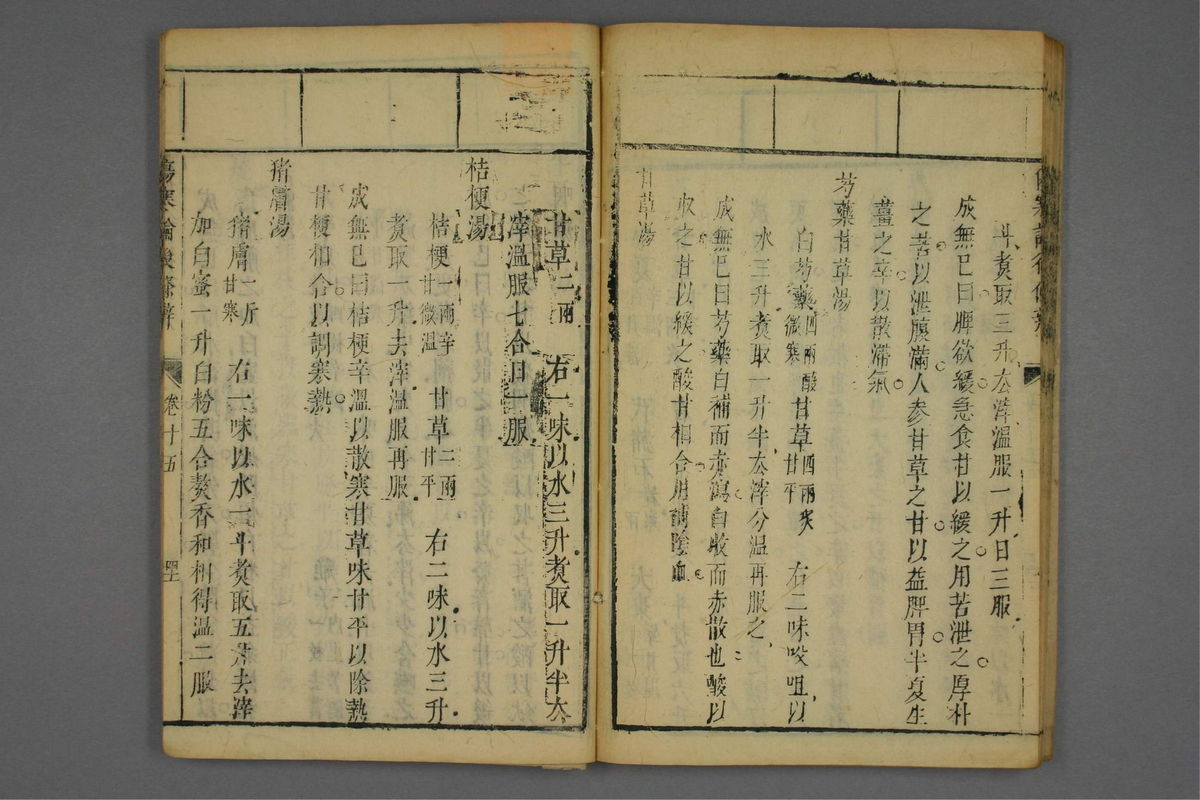 斗煑取三升去滓溫服一升日三服
成無巳曰脾欲緩急食甘以緩之用苦泄之厚朴
之苦以泄腹滿人參甘草之甘以益脾胃半夏生
薑之辛以散滯氣
芍藥甘草湯
白芍藥四兩酸微寒甘草四兩炙甘平 右二味㕮咀以
水三升煑取一升半去滓分温再服之
成無巳曰芍藥白補而赤瀉白收而赤散也酸以
收之甘以緩之酸甘相合用補陰血
甘草湯
甘草二兩 右一味以水三升煑取一升半去
滓溫服七合日二服
桔梗湯
桔梗一兩辛微温 甘草二兩甘平 右二味以水三升
煑取一升去滓温服再服
成無巳曰桔梗辛溫以散寒甘草味甘平以除熱
甘梗相合以調寒熱
猪膚湯
猪膚一斤甘寒 右一味以水一斗煑取五升去滓
加白蜜一升白粉五合熬香和相得溫二服
傷寒論後條辨 卷十五